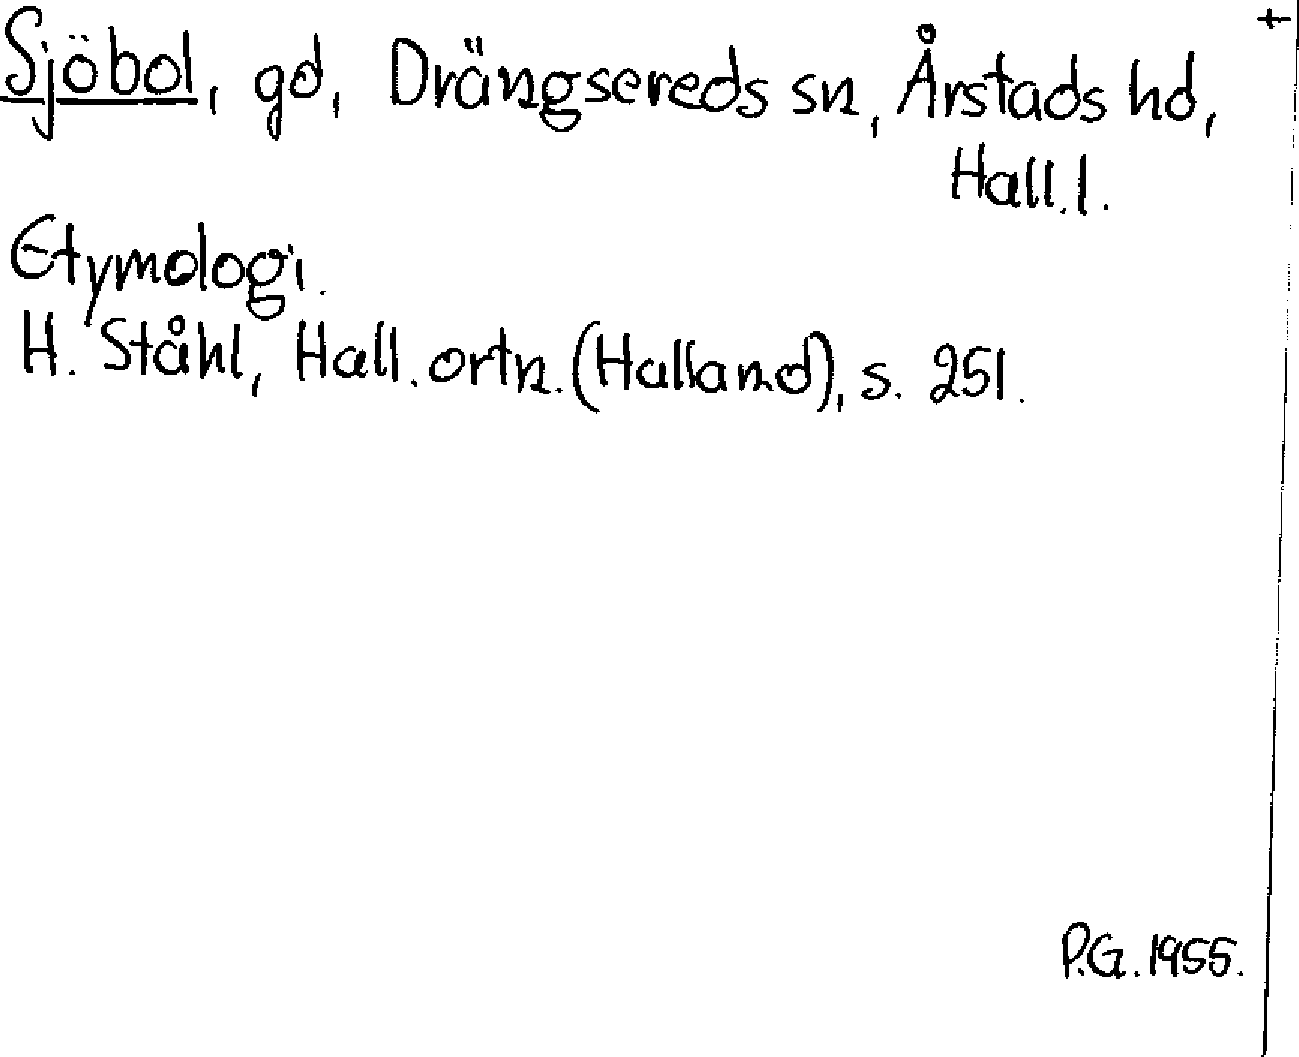 +
Sjöbol, gd, Drängsereds sn, Årstads hd,
Hall.l.
Etymologi.
H. Ståhl, Hall. ortn. (Halland), s. 251.
P.G. 1955.